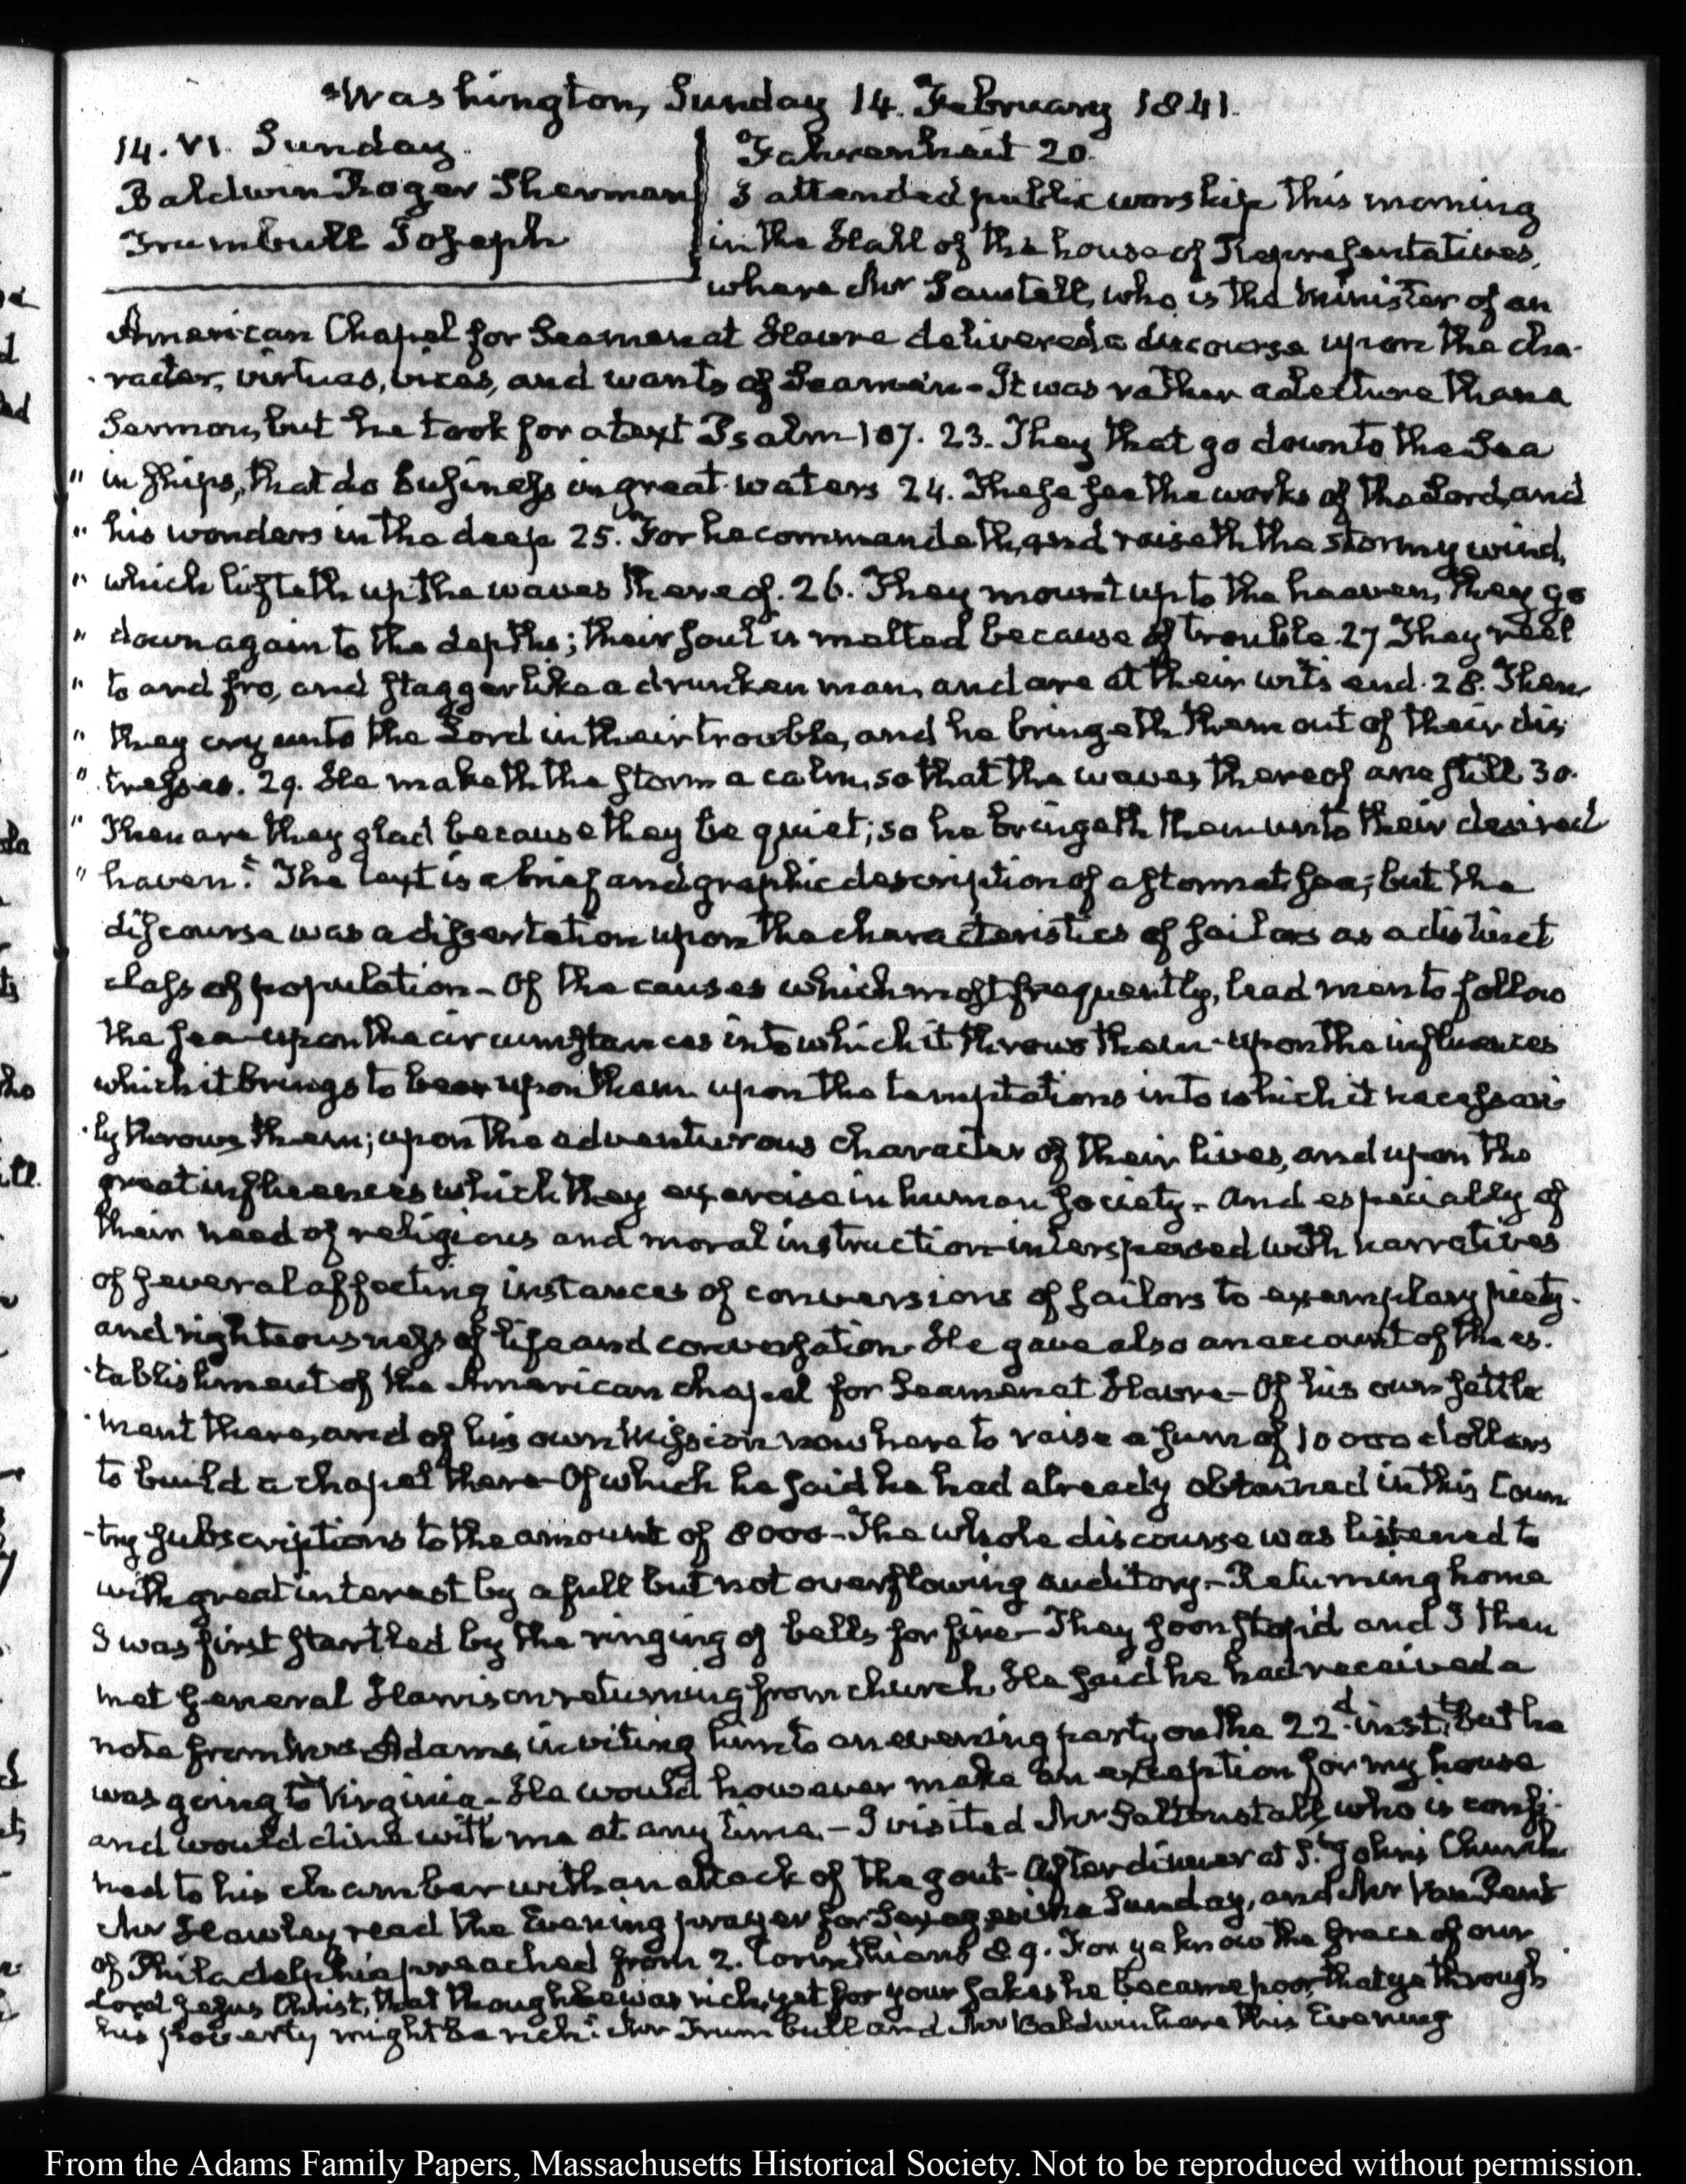 Washington, Sunday 14. February 1841.
14. VI. Sunday.
Baldwin Roger Sherman
Trumbull Joseph
Fahrenheit 20.
I attended public worship this morning
in the Hall of the house of Representatives,
where Mr Sawtell, who is the Minister of an
American Chapel for Seamen at Havre delivered a discourse upon the cha-
-racter, virtues, vices, and wants of Seamen - It was rather a lecture than a
Sermon, but he took for a text Psalm 107. 23. They that go down to the Sea
" in ships, that do business in great waters 24. These see the works of the Lord, and
" his wonders in the deep 25. For he commandeth, and raiseth the stormy wind,
" which lifteth up the waves thereof. 26. They mount up to the heaven, they go
" down again to the depths; their soul is melted because of trouble. 27 They reel
" to and fro, and stagger like a drunken man, and are at their wits end. 28. Then
" they cry unto the Lord in their trouble, and he bringeth them out of their dis
" tresses. 29. He maketh the storm a calm, so that the waves thereof are still 30.
" Then are they glad because they be quiet; so he bringeth them unto their desired
" haven." The text is a brief and graphic description of a storm at sea; but the
discourse was a dissertation upon the characteristics of sailors as a distinct
class of population - Of the causes which most frequently, lead men to follow
the sea - upon the circumstances into which it throws them - upon the influences
which it brings to bear upon them upon the temptations into which it necessari
-ly throws them; upon the adventurous character of their lives, and upon the
great influences which they exercise in human society - and especially of
their need of religious and moral instruction - interspersed with narratives
of several affecting instances of conversions of sailors to exemplary piety
and righteousness of life and conversation. He gave also an account of the es-
-tablishment of the American chapel for Seamen at Havre - Of his own settle
-ment there, and of his own Mission now here to raise a sum of 10000 dollars
to build a chapel there - Of which he said he had already obtained in this Coun
-try subscriptions to the amount of 8000 - The whole discourse was listened to
with great interest by a full but not overflowing auditory - Returning home
I was first startled by the ringing of bells for fire - They soon stop'd and I then
met General Harrison returning from church. He said he had received a
note from Mrs Adams, inviting him to an evening party on the 22d. inst. But he
was going to Virginia - He would however make an exception for my house
and would dine with me at any time. - I visited Mr Saltonstall, who is confi-
ned to his chamber with an attack of the gout - After dinner at St. John's Church
Mr Hawley read the Evening prayer for Sexagesima Sunday, and Mr Van Pent
of Philadelphia preached from 2. Corinthians 8 9. For ye know the grace of our
Lord Jesus Christ, that though he was rich, yet for your sakes he became poor, that ye through
his poverty might be rich." Mr Trumbull and Mr Baldwin here this Evening
From the Adams Family Papers, Massachusetts Historical Society. Not to be reproduced without permission.